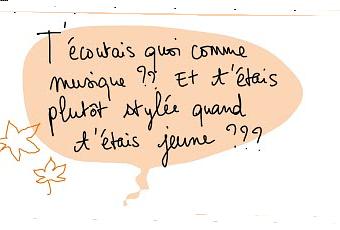 T'écoutais quoi comme
musique ?? Et t'étais
plutôt stylée quand
t'étais jeune ???